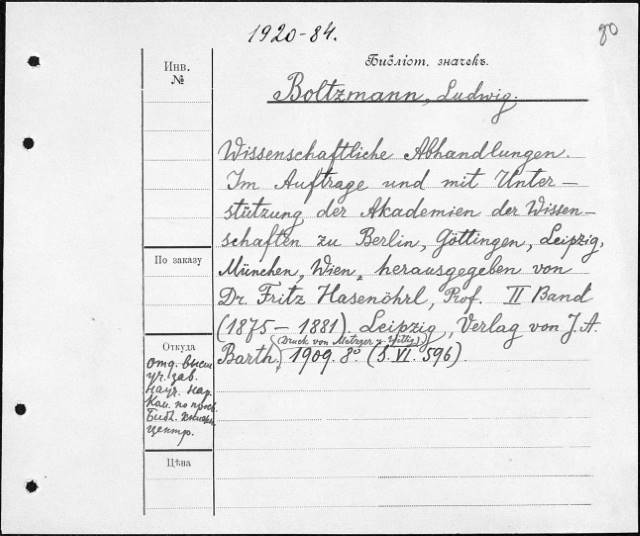 1920-84.
80
Инв.
№
Библіот. значекъ.
Boltzmann, Ludwig.
Wissenschaftliche Abhandlungen.
Im Auftrage und mit Unter-
stützung der Akademien der Wissen-
schaften zu Berlin, Göttingen, Leipzig,
München, Wien, herausgegeben von
Dr. Fritz Hasenöhrl, Prof. II Band
(1875 - 1881). Leipzig, Verlag von J. A.
(Druck von Metzger & Wittig)
Barth. 1909. 8° (S. VI. 596).
По заказу
Откуда
отд. высш
уч. зав.
науч. нар.
Ком. по просв.
Библ. книжн.
центр.
Цѣна